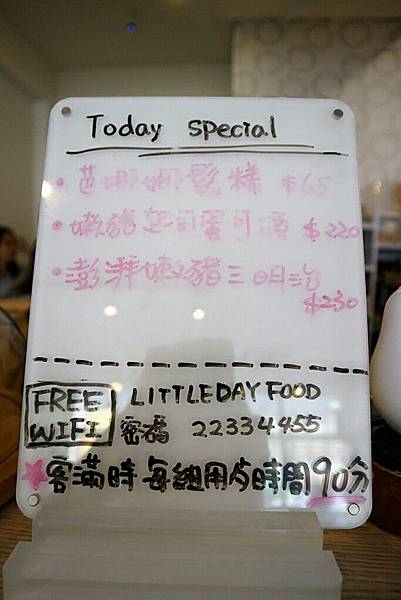 Today special
• 芭娜娜鬆糕 $65
• 嫩豬起司蛋可頌 $220
• 澎湃嫩豬三明治
$230
FREE LITTLEDAY FOOD
WIFI 密碼 22334455
★客滿時每組用餐時間90分